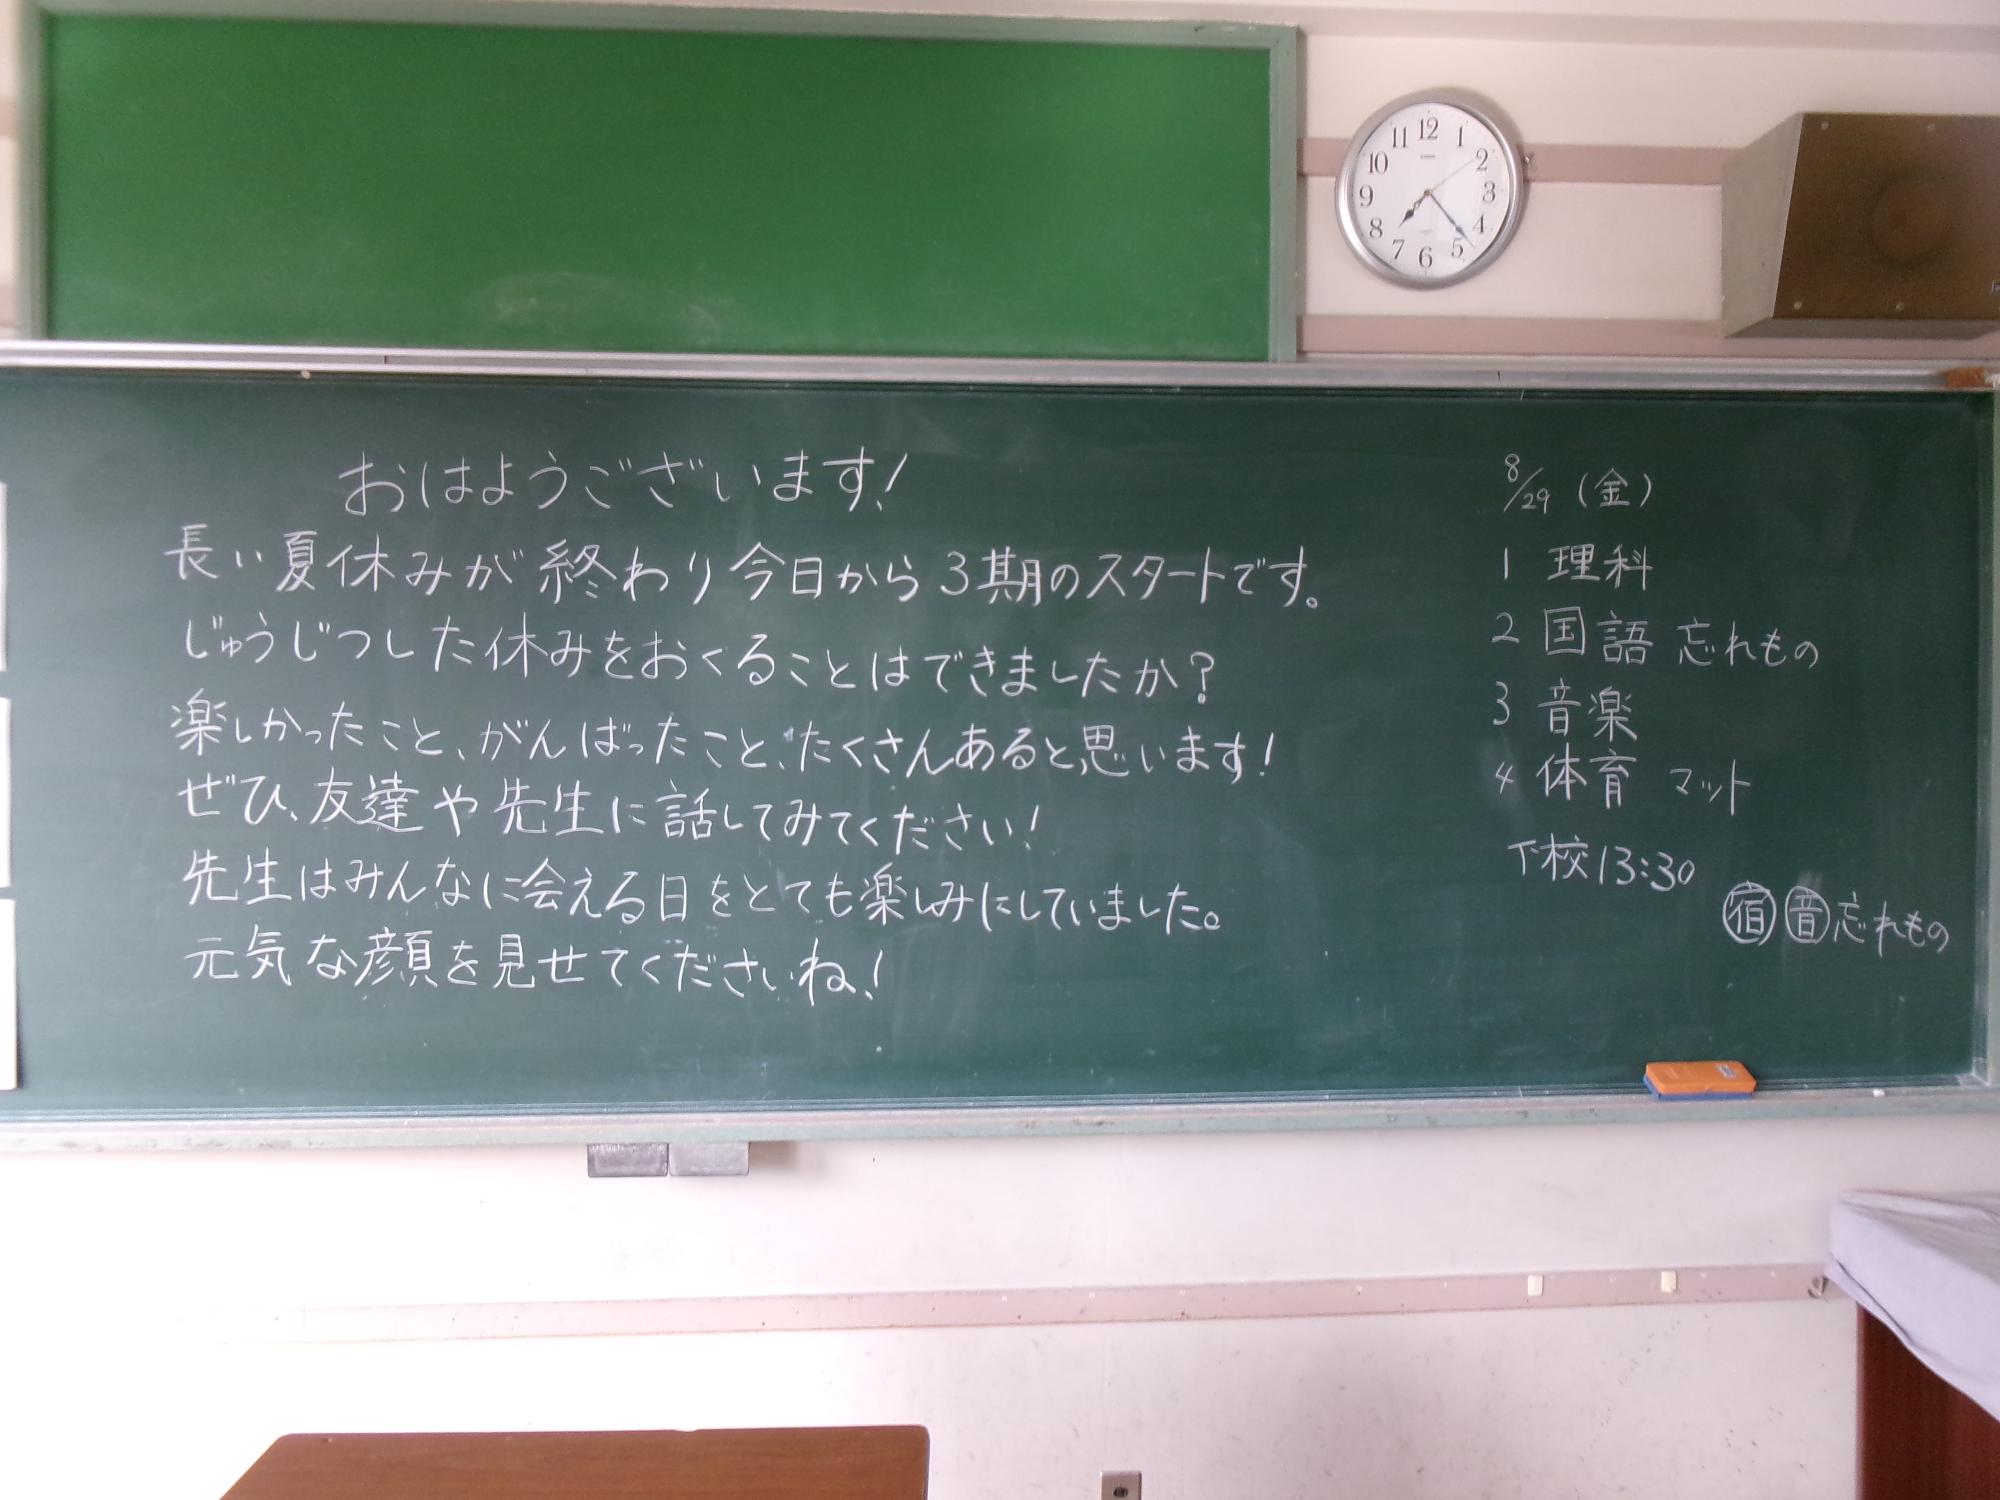 おはようございます!
長い夏休みが終わり今日から3期のスタートです。
じゅうじつした休みをおくることはできましたか?
楽しかったこと、がんばったこと、たくさんあると思います!
ぜひ、友達や先生に話してみてください!
先生はみんなに会える日をとても楽しみにしていました。
元気な顔を見せてくださいね!
8/29 (金)
1 理科
2 国語 忘れもの
3 音楽
4 体育 マット
下校13:30
宿 音 忘れもの
11 12 1
10 2
9 3
8 4
7 6 5